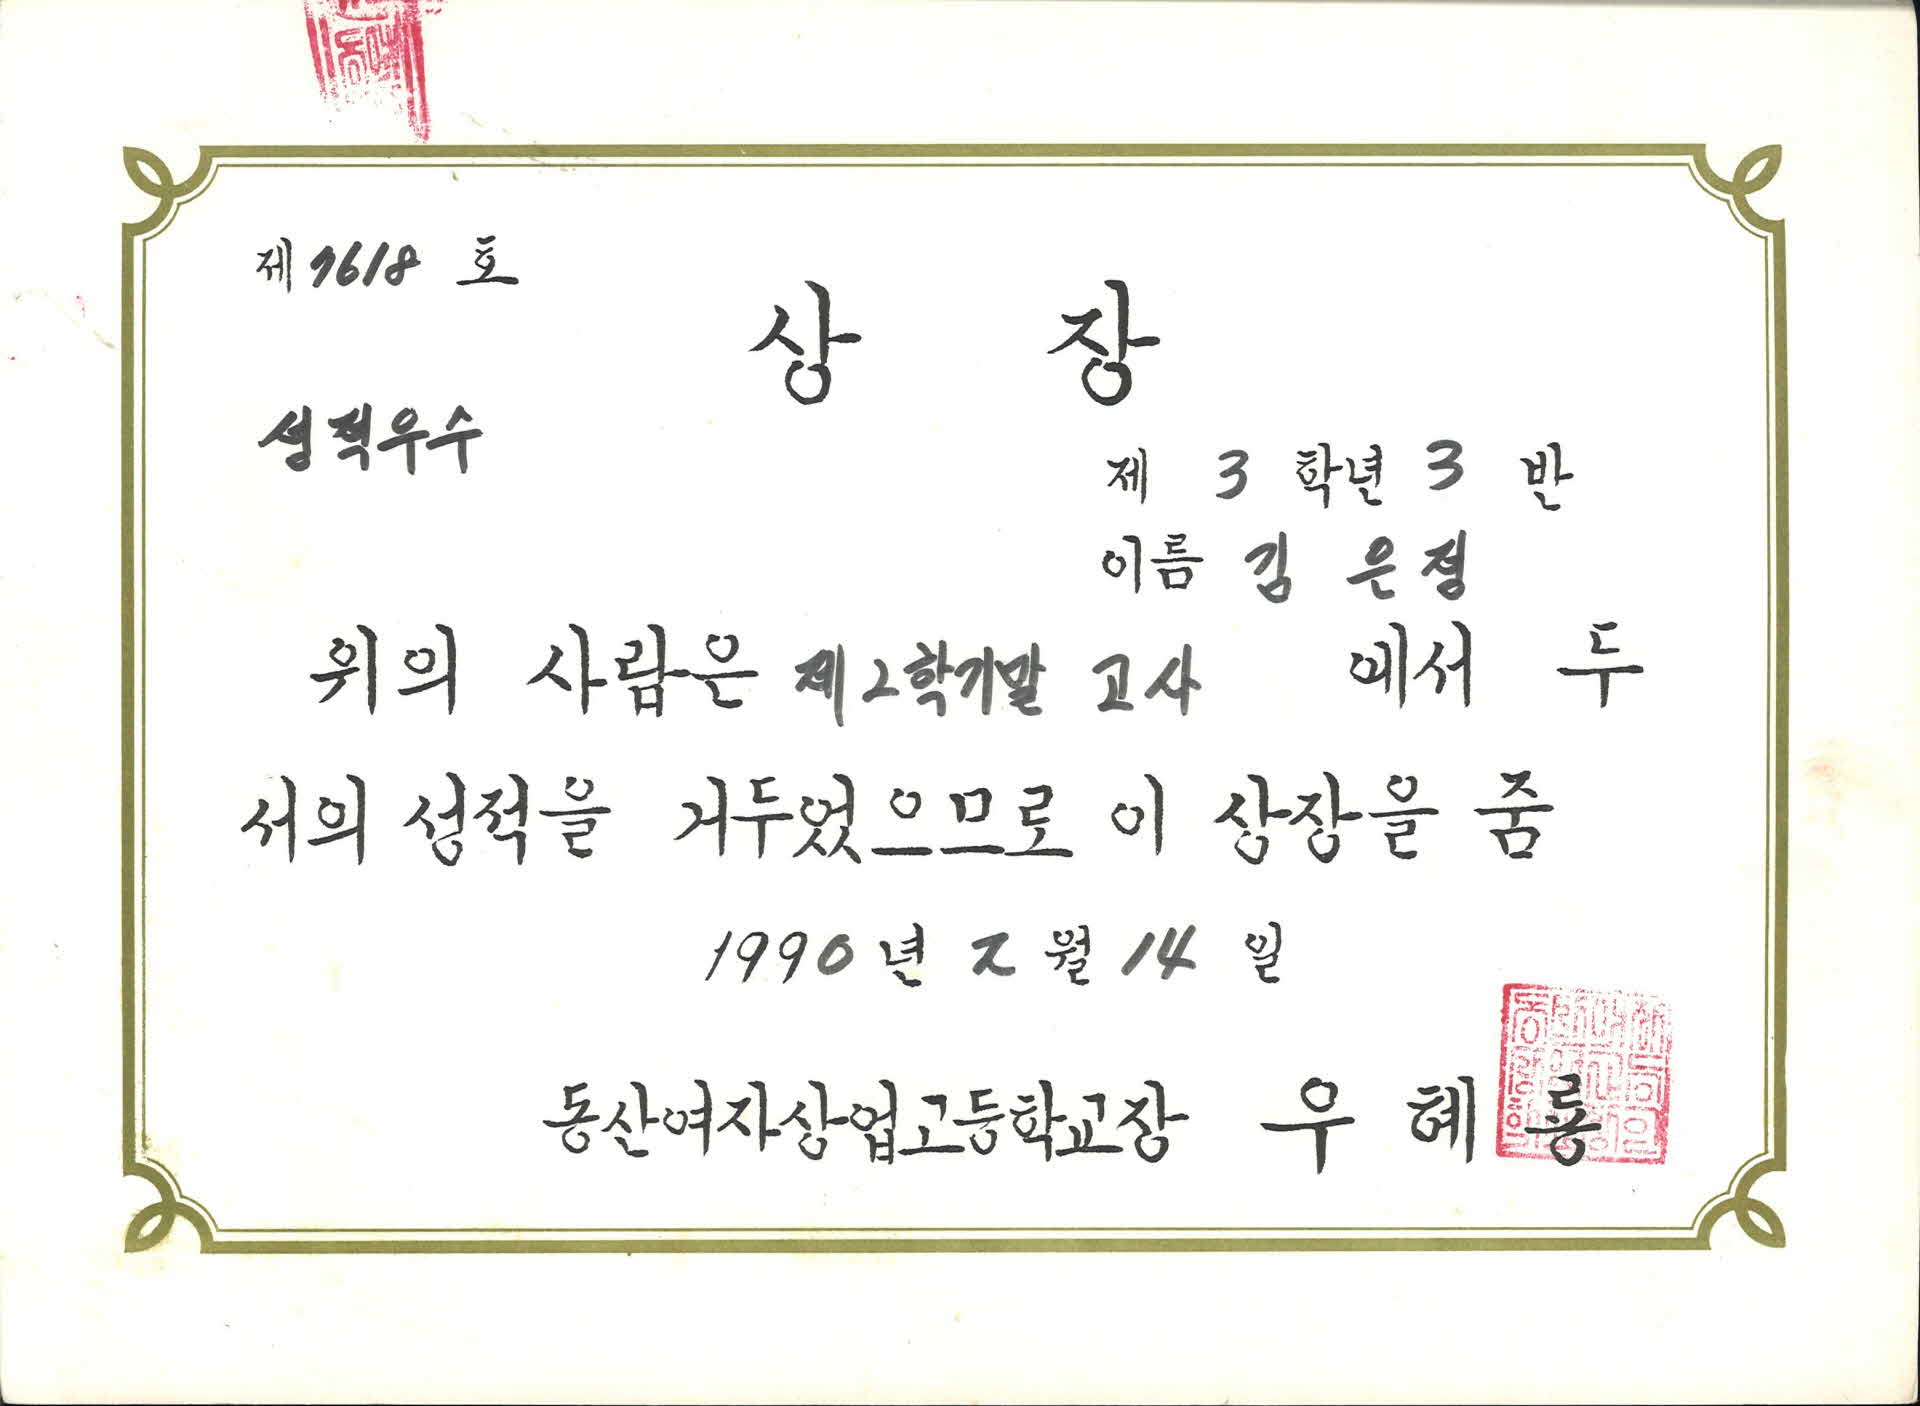 제 7618 호
상 장
성적우수
제 3 학년 3 반
이름 김 은 정
위의 사람은 제2학기말 고사 에서 두
서의 성적을 거두었으므로 이 상장을 줌
1990 년 2 월 14 일
동산여자상업고등학교장 우 혜 룡